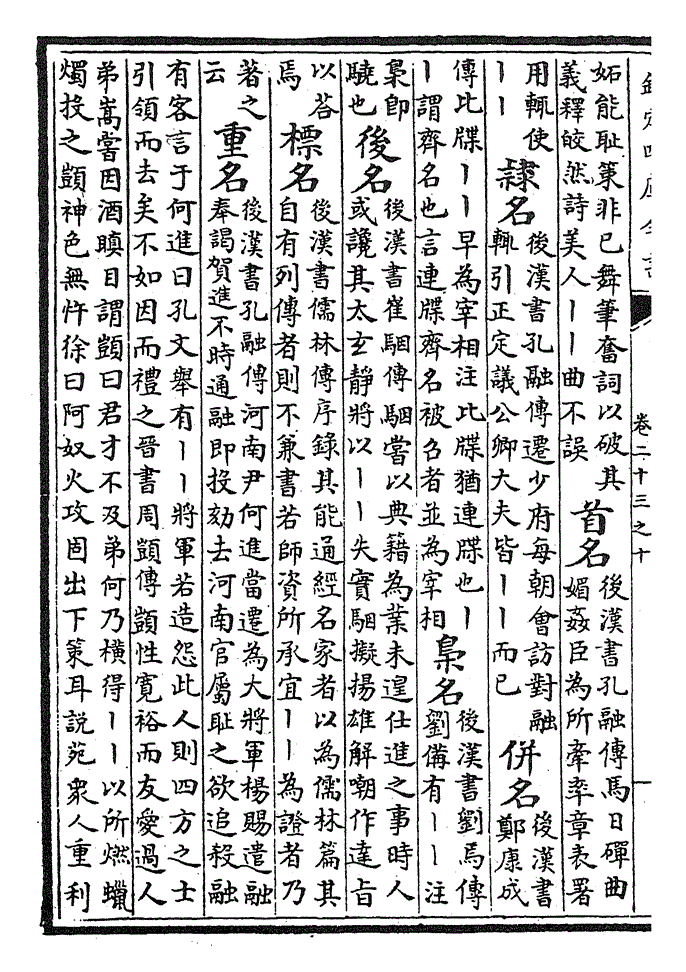 欽定四庫全書
卷二十三之十
妬能耻策非已舞筆奮詞以破其
義釋皎然詩美人丨丨曲不誤
首名
後漢書孔融傳馬日磾曲
媚姦臣為所牽率章表署
用輒使
丨丨
隷名
後漢書孔融傳遷少府每朝會訪對融
輒引正定議公卿大夫皆丨丨而已
併名
後漢書
鄭康成
傳比牒丨丨早為宰相注比牒猶連牒也丨
丨謂齊名也言連牒齊名被召者並為宰相
梟名
後漢書劉焉傳
劉備有丨丨注
梟即
驍也
後名
後漢書崔駰傳駰嘗以典籍為業未遑仕進之事時人
或譏其太玄靜將以丨丨失實駰擬揚雄解嘲作達旨
以荅
焉
標名
後漢書儒林傳序錄其能通經名家者以為儒林篇其
自有列傳者則不兼書若師資所承宜丨丨為證者乃
著之
云
重名
後漢書孔融傳河南尹何進當遷為大將軍楊賜遣融
奉謁賀進不時通融即投劾去河南官屬耻之欲追殺融
有客言于何進曰孔文舉有丨丨將軍若造怨此人則四方之士
引領而去矣不如因而禮之晉書周顗傳顗性寬裕而友愛過人
弟嵩嘗因酒瞋目謂顗曰君才不及弟何乃橫得丨丨以所燃蠟
燭投之顗神色無忤徐曰阿奴火攻固出下策耳説苑衆人重利